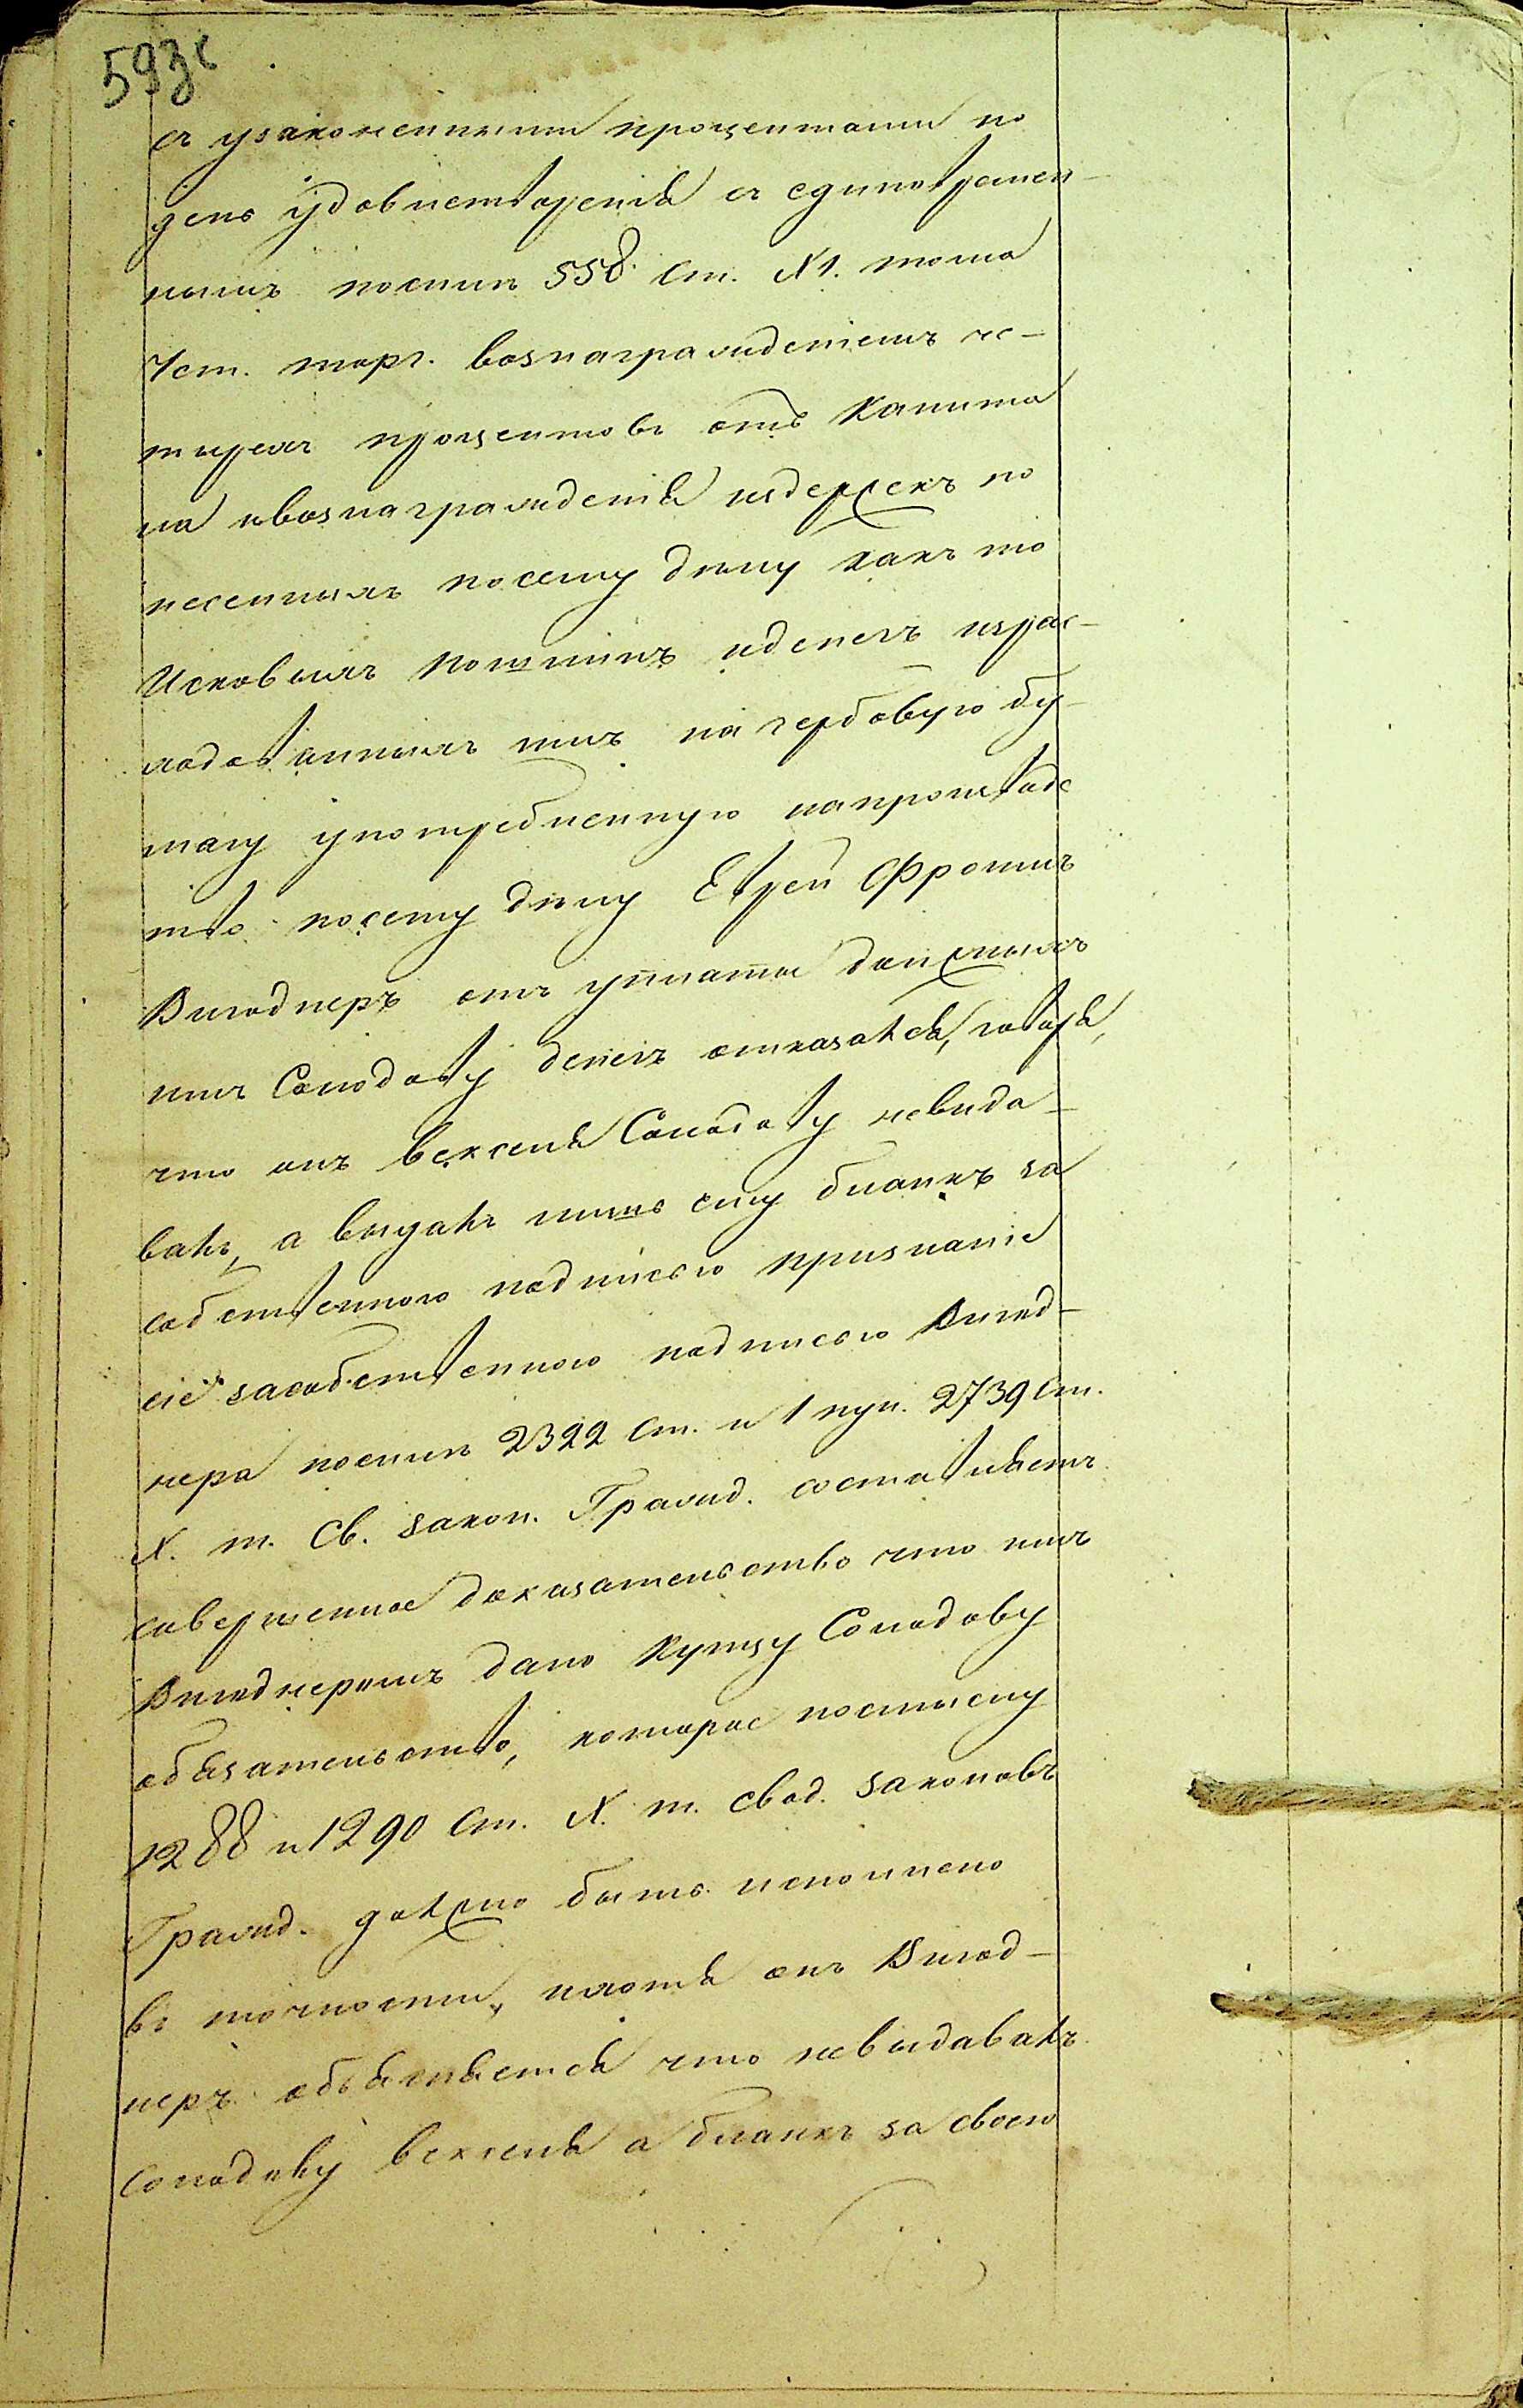 593с
съ узаконенными процентами по
день удовлетворенія съ единовремен-
нымъ посилѣ 558 ст. XI. тома
Уст. торг. вознагражденіемъ че-
тырехъ процентовъ отъ капита
ла ивознагражденія издержекъ по
несенныхъ посему дѣлу какъ то
Исковыхъ пошлинъ иденегъ израс-
ходованныхъ имъ на гербовую бу-
магу употребленную напроизводс
тво посему дѣлу Еврей Фроимъ
Вигоднеръ отъ уплаты должныхъ
имъ Солодову денегъ отказался, говоря,
что онъ векселя Солодову невыда-
валъ, а выдалъ лишь ему бланкъ за
собственною подписью признаніе
сіе засобственною подписью Вигод-
нера посилѣ 2322 ст. и 1 пун. 2739 ст.
X. т. Св. закон. Гражд. составляетъ
совершенное доказательство что имъ
Вигоднеромъ дано купцу Солодову
обязательство, которое посмыслу
1288 и 1290 ст. X. т. свод. законовъ
Гражд. должно быть исполнено
въ точности, ихотя онъ Вигод-
неръ объясняется что невыдавалъ
Солодову векселя а бланкъ за своею